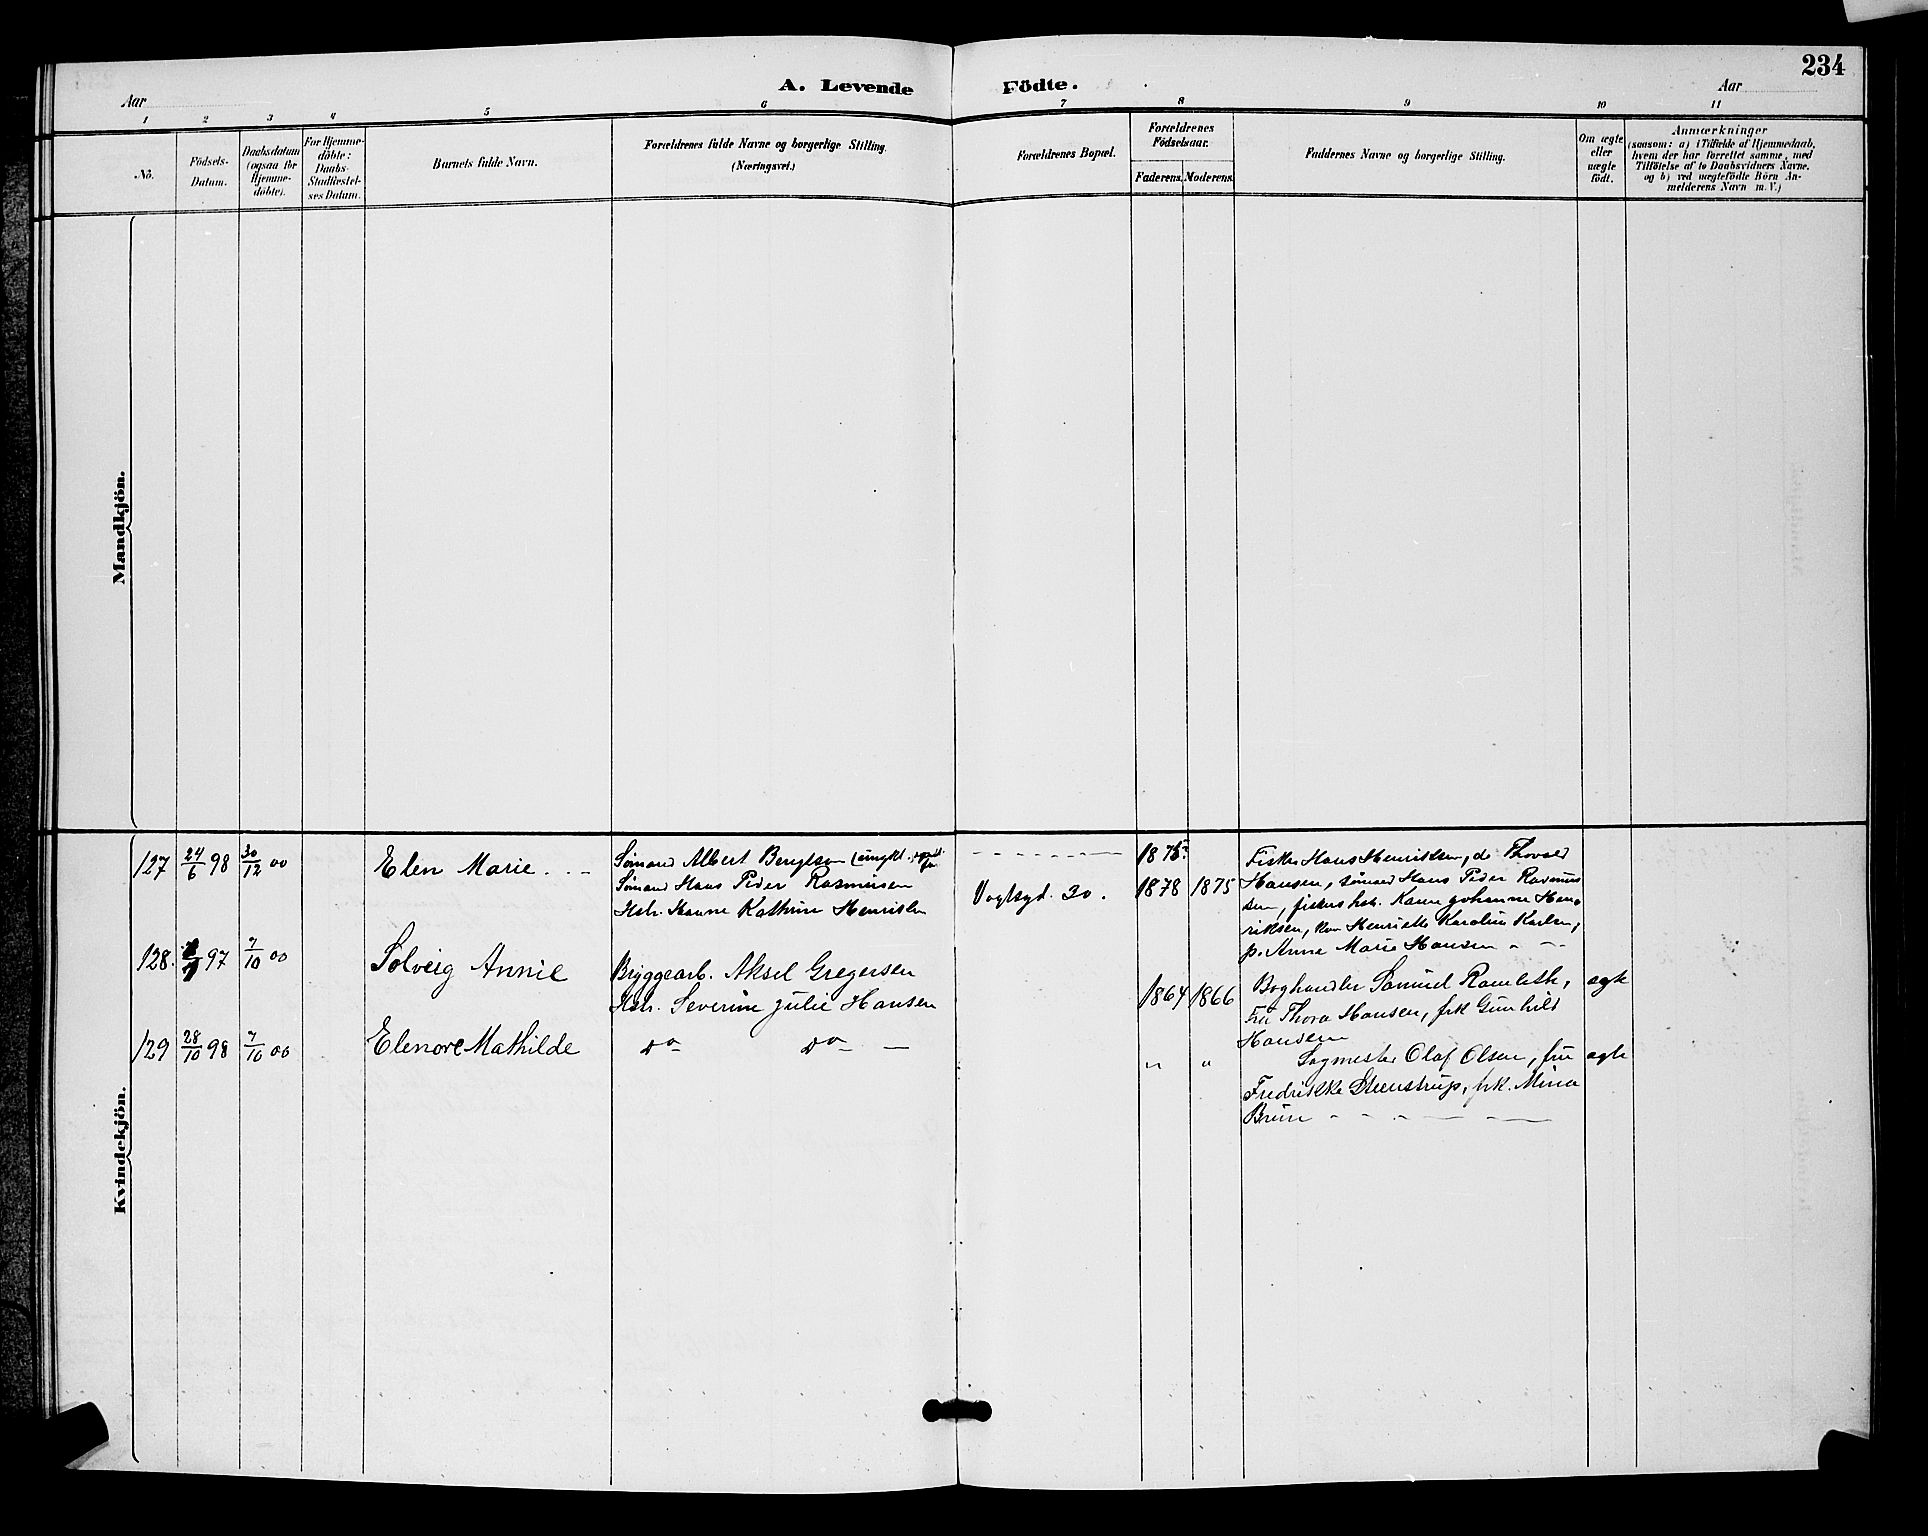 234
Aar
A. Levende Födte.
Aar
1 2 3 4 5 6 7 8 9 10 11
No.
Födsels-
Datum.
Daabsdatum
(ogsaa for
Hjemme-
döbte).
For Hjemme-
döbte:
Daabs-
Stadfæstel-
ses Datum.
Barnets fulde Navn.
Forældrenes fulde Navne og borgerlige Stilling.
(Næringsvei.)
Forældrenes Bopæl.
Forældrenes
Födselsaar.
Faderens. Moderens.
Faddernes Navne og borgerlige Stilling.
Om ægte
eller
uægte
födt.
Anmærkninger
(saasom: a) i Tilfælde af Hjemmedaab,
hvem der har forrettet samme, med
Tilföielse af to Daabsvidners Navne.
og b) ved uægtefödte Börn An-
melderens Navn m. V.)
Mandkjön.
Kvindekjön.
127 24/6 98 30/12 00
Elen Marie
Sømand Albert Bengtson
Sømand Hans Peder Rasmusen
Hstr. Hanne Kathrine Henriksen
Vogtsgd. 30.
1875
1878 1875
Fisker Hans Henriksen, do Thorvald
Hansen, sømand Hans Peder Rasmus
sen, fiskers hst. Karen Johanne Hen
riksen, Henriette Karoline Karlsen,
p. Anne Marie Hansen
128. 97 7/10 00
Solveig Annie
Bryggearb. Aksel Gregersen
Hstr. Severine Julie Hansen
1864 1866
Boghandler Samuel Ramleth,
Fru Thora Hansen, frk Gunhild
Hansen
ægte
129 28/10 98 7/10 00
Elenore Mathilde
do do
" "
Sagmester Olaf Olsen, fru
Fredrikke Steenstrup, frk. Mina
Brun
ægte